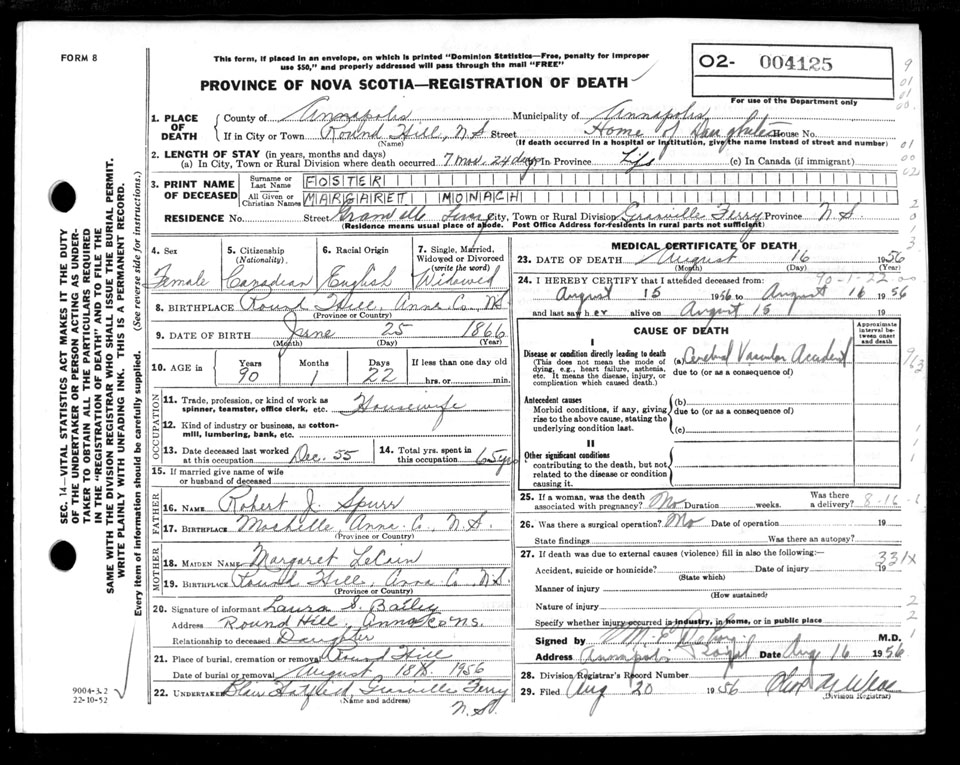 FORM 8
This form, if placed in an envelope, on which is printed "Dominion Statistics—Free, penalty for improper
use $50," and properly addressed will pass through the mail "FREE"
PROVINCE OF NOVA SCOTIA—REGISTRATION OF DEATH
O2- 004125
For use of the Department only
1. PLACE OF DEATH
County of Annapolis Municipality of Annapolis
If in City or Town Round Hill, N.S. Street Home of Daughter House No.
(Name) (If death occurred in a hospital or institution, give the name instead of street and number)
2. LENGTH OF STAY (in years, months and days)
(a) In City, Town or Rural Division where death occurred 7 mos. 24 days In Province Life (c) In Canada (if immigrant)
3. PRINT NAME OF DECEASED
Surname or Last Name FOSTER
All Given or Christian Names MARGARET MONACH
RESIDENCE No. Street Granville City, Town or Rural Division Granville Ferry Province N S
(Residence means usual place of abode. Post Office Address for residents in rural parts not sufficient)
4. Sex Female
5. Citizenship (Nationality). Canadian
6. Racial Origin English
7. Single, Married, Widowed or Divorced (write the word) Widowed
8. BIRTHPLACE Round Hill, Anna Co., N.S.
(Province or Country)
9. DATE OF BIRTH June 25 1866
(Month) (Day) (Year)
10. AGE in Years 90 Months 1 Days 22 If less than one day old
hrs. or min.
OCCUPATION
11. Trade, profession, or kind of work as
spinner, teamster, office clerk, etc. Housewife
12. Kind of industry or business, as cotton-
mill, lumbering, bank, etc.
13. Date deceased last worked
at this occupation Dec. 55
14. Total yrs. spent in
this occupation 65 yrs
15. If married give name of wife
or husband of deceased
FATHER
16. NAME Robert J. Spurr
17. BIRTHPLACE Moshelle, Anna. Co., N.S.
(Province or Country)
MOTHER
18. MAIDEN NAME Margaret LeCain
19. BIRTHPLACE Round Hill, Anna Co., N.S.
(Province or Country)
20. Signature of informant Laura S. Bailey
Address Round Hill, Anna Co N.S.
Relationship to deceased Daughter
21. Place of burial, cremation or removal Round Hill
Date of burial or removal August 18th 1956
22. UNDERTAKER Blair Hatfield, Granville Ferry
(Name and address) N.S.
MEDICAL CERTIFICATE OF DEATH
23. DATE OF DEATH August 16 1956
(Month) (Day) (Year)
90-1-22
24. I HEREBY CERTIFY that I attended deceased from:
August 15 1956 to August 16 1956
and last saw her alive on August 15 19
CAUSE OF DEATH
Approximate interval between onset and death
I
Disease or condition directly leading to death
(This does not mean the mode of
dying, e.g., heart failure, asthenia,
etc. It means the disease, injury, or
complication which caused death.)
(a) Cerebral Vascular Accident
due to (or as a consequence of)
Antecedent causes
Morbid conditions, if any, giving
rise to the above cause, stating the
underlying condition last.
(b)
due to (or as a consequence of)
(c)
II
Other significant conditions
contributing to the death, but not
related to the disease or condition
causing it.
25. If a woman, was the death
associated with pregnancy? No Duration weeks. Was there a delivery? 8-16-
26. Was there a surgical operation? No Date of operation 19
State findings Was there an autopsy?
27. If death was due to external causes (violence) fill in also the following: 331X
Accident, suicide or homicide? Date of injury 19
(State which)
Manner of injury
(How sustained)
Nature of injury
Specify whether injury occurred in industry, in home, or in public place
Signed by M.D.
Address Annapolis Royal Date Aug 16 1956
28. Division Registrar's Record Number
29. Filed Aug 20 1956
(Division Registrar)
SEC. 14—VITAL STATISTICS ACT MAKES IT THE DUTY
OF THE UNDERTAKER OR PERSON ACTING AS UNDER-
TAKER TO OBTAIN ALL THE PARTICULARS REQUIRED
IN THE "REGISTRATION OF DEATH" AND TO FILE THE
SAME WITH THE DIVISION REGISTRAR WHO SHALL ISSUE THE BURIAL PERMIT.
WRITE PLAINLY WITH UNFADING INK. THIS IS A PERMANENT RECORD.
Every item of information should be carefully supplied. (See reverse side for instructions.)
9004-3.2
22-10-52